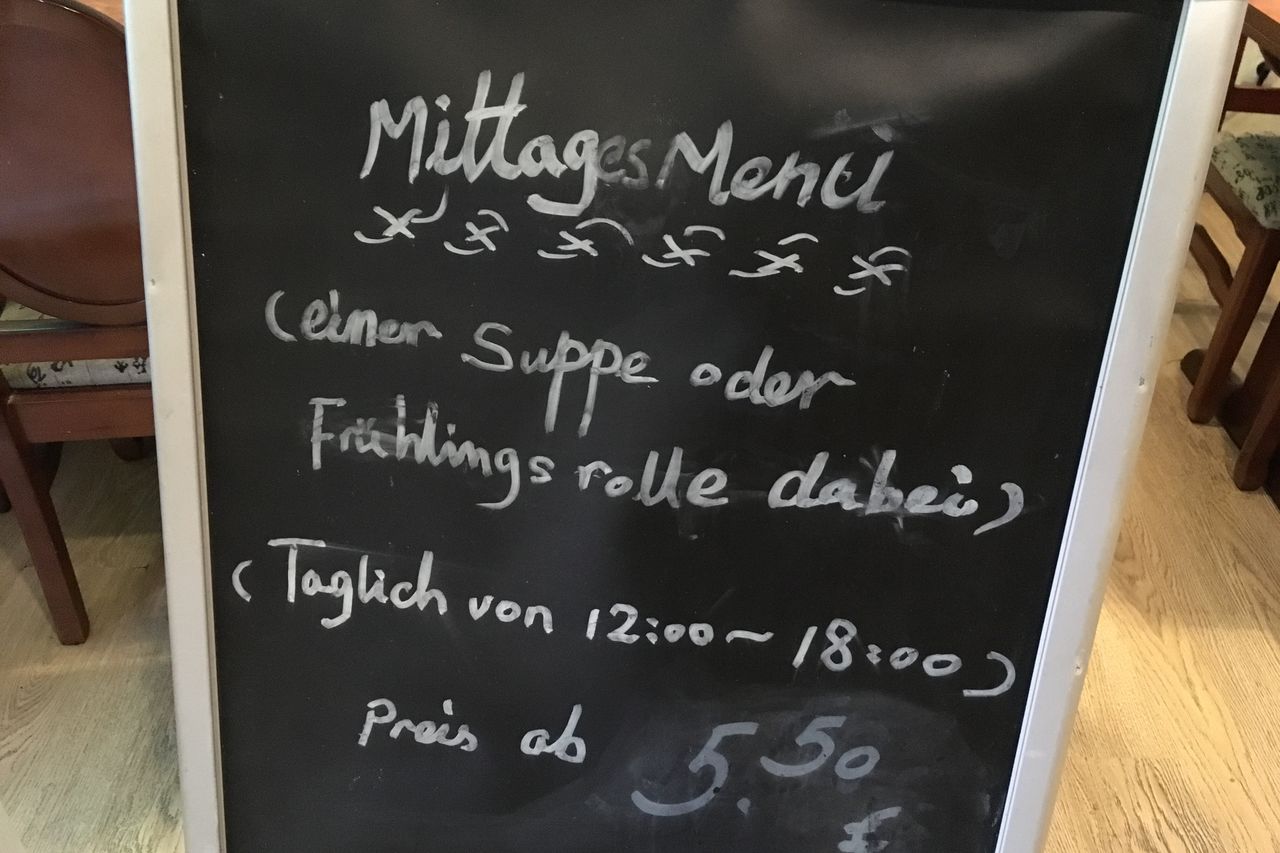 MittagesMenü
(einer Suppe oder
Frühlingsrolle dabei)
(Taglich von 12:00~18:00)
Preis ab 5.50
€